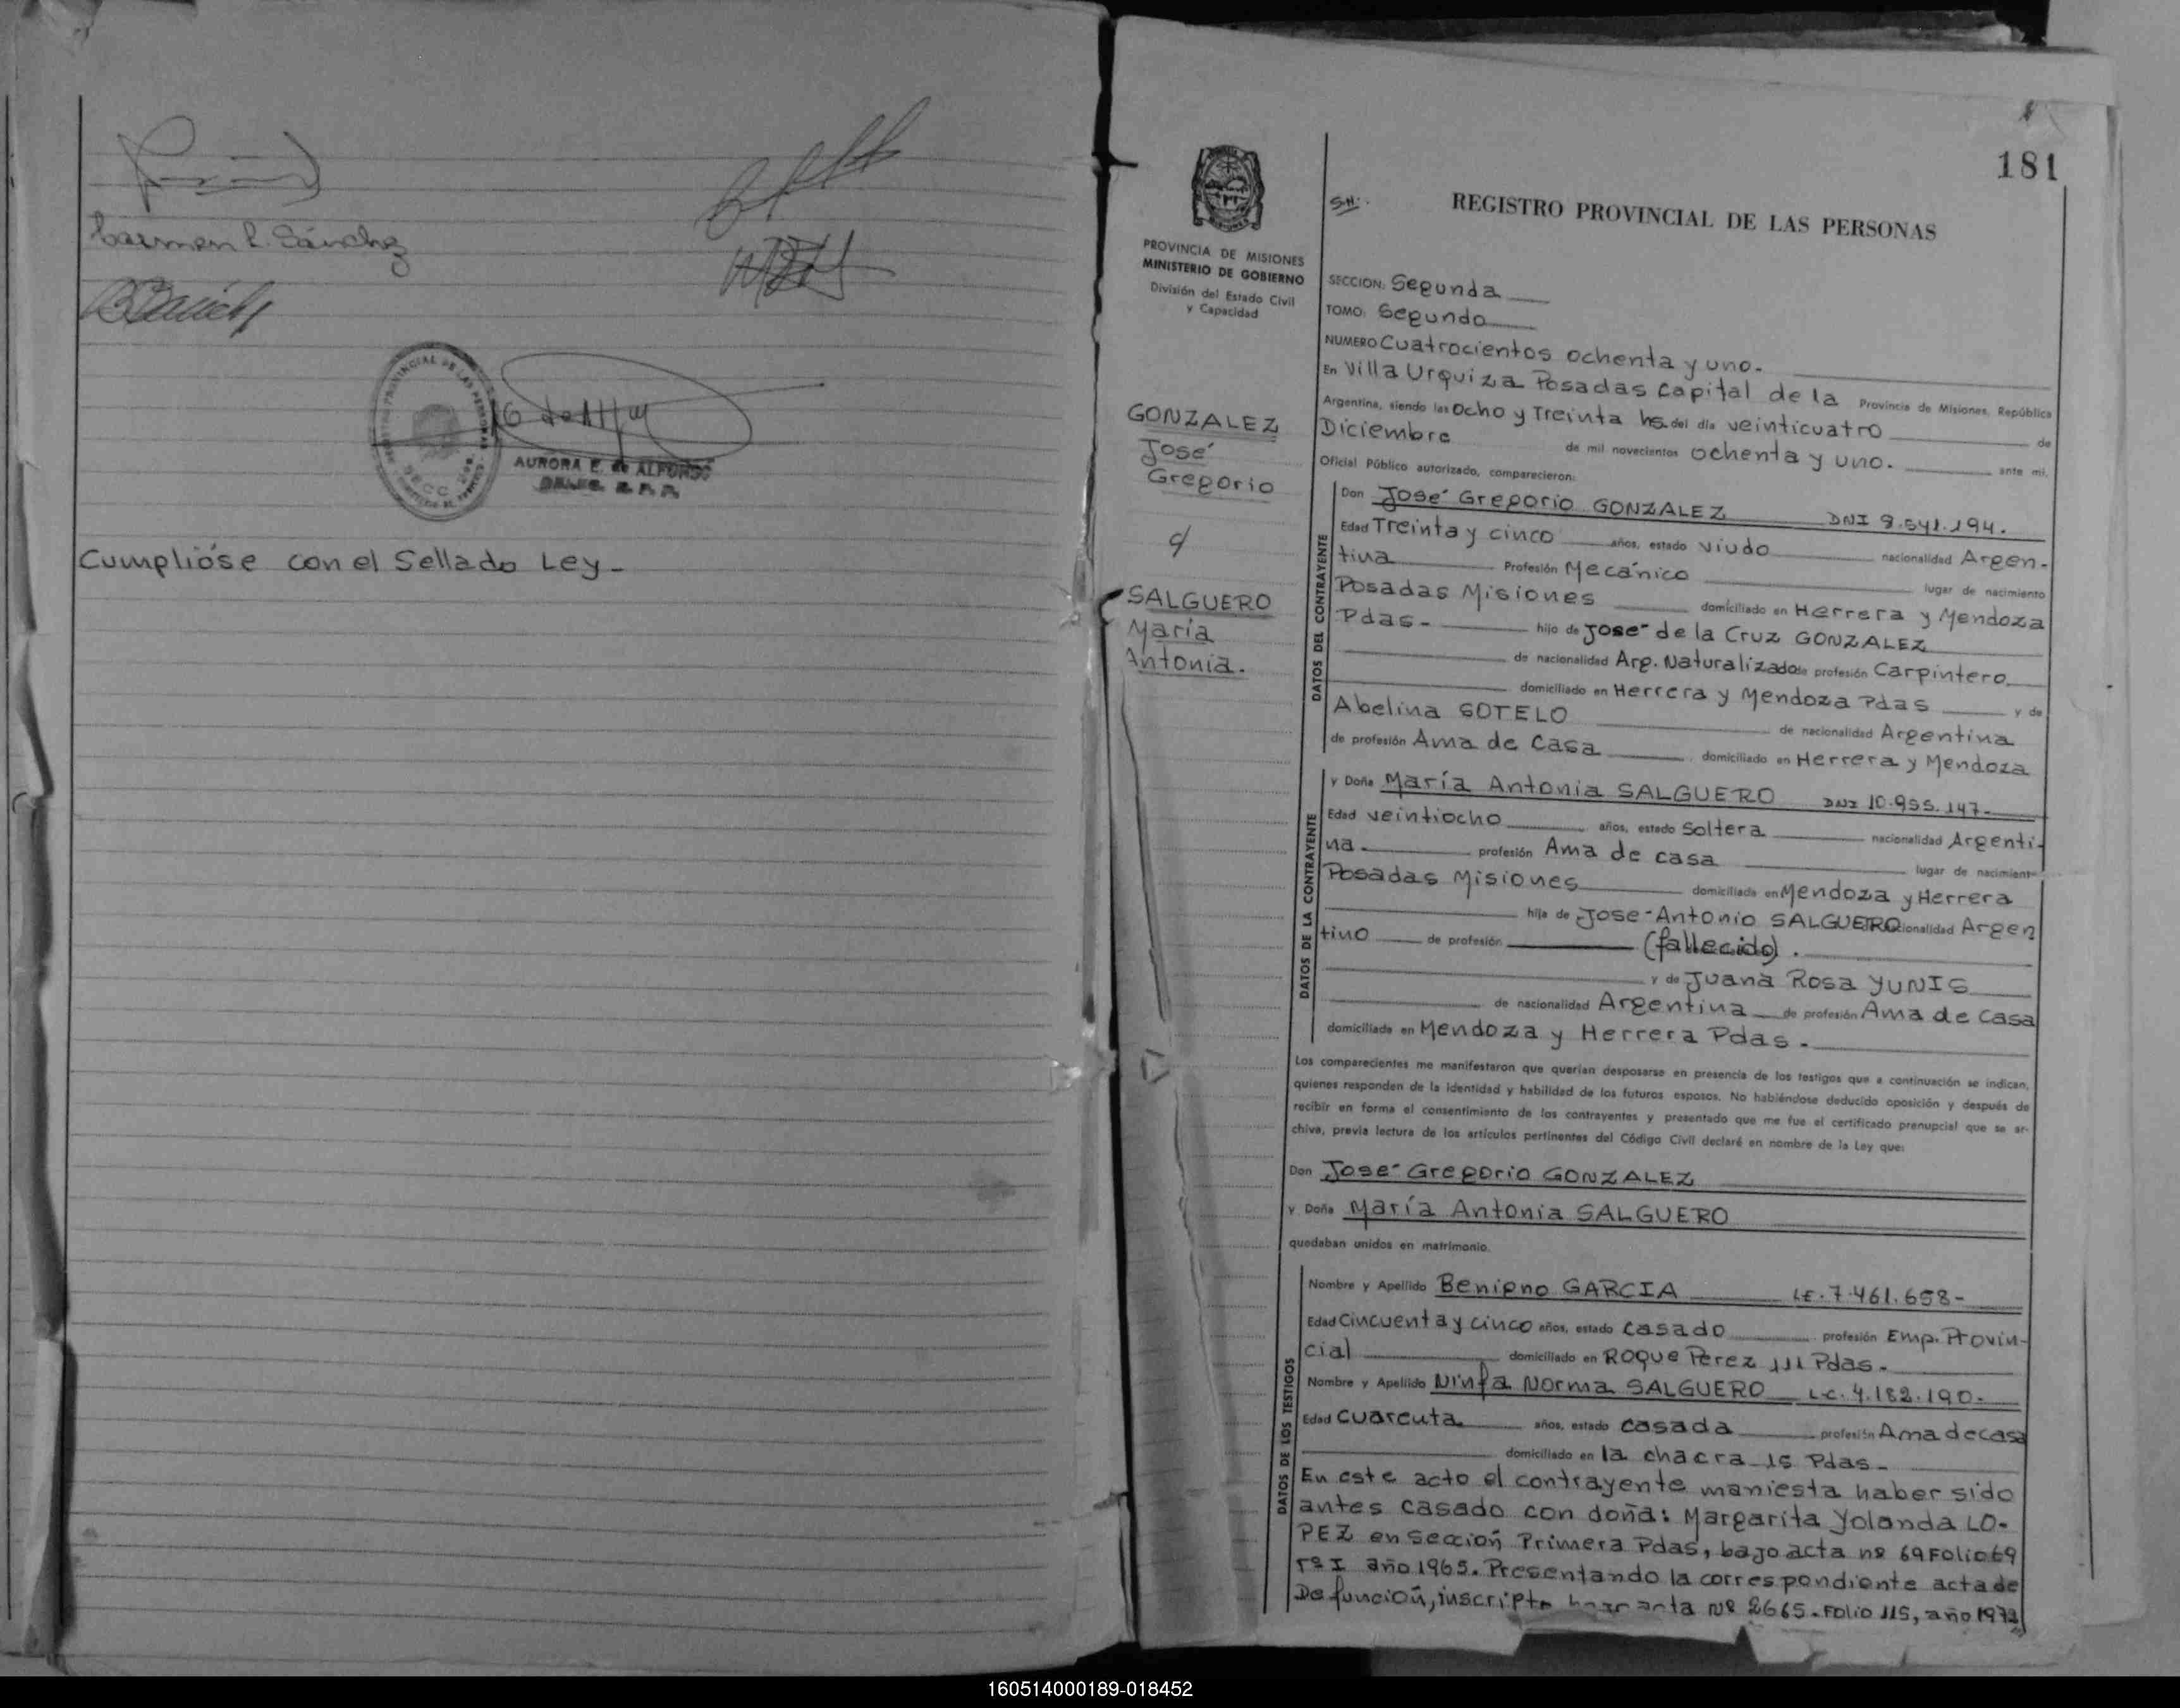 Carmen R. Sánchez
REGISTRO PROVINCIAL DE LAS PERSONAS
SECC. 2da.
AURORA E. de ALFONSO
Cumplióse con el Sellado Ley-
181
PROVINCIA DE MISIONES
MINISTERIO DE GOBIERNO
División del Estado Civil
y Capacidad
GONZALEZ
José
Gregorio
c/
SALGUERO
María
Antonia.
SH:.
REGISTRO PROVINCIAL DE LAS PERSONAS
SECCION: Segunda
TOMO: Segundo
NUMERO Cuatrocientos ochenta y uno.
En Villa Urquiza Posadas Capital de la Provincia de Misiones, República
Argentina, siendo las Ocho y Treinta hs. del día veinticuatro de
Diciembre de mil novecientos ochenta y uno. ante mí,
Oficial Público autorizado, comparecieron:
DATOS DEL CONTRAYENTE
Don José Gregorio GONZALEZ DNI 8.541.194.
Edad Treinta y cinco años, estado viudo nacionalidad Argen-
tina Profesión Mecánico lugar de nacimiento
Posadas Misiones domiciliado en Herrera y Mendoza
Pdas- hijo de José de la Cruz GONZALEZ
de nacionalidad Arg. Naturalizado de profesión Carpintero
domiciliado en Herrera y Mendoza Pdas y de
Abelina SOTELO de nacionalidad Argentina
de profesión Ama de Casa domiciliado en Herrera y Mendoza
DATOS DE LA CONTRAYENTE
y Doña María Antonia SALGUERO DNI 10.955.147-
Edad veintiocho años, estado Soltera nacionalidad Argenti-
na. profesión Ama de casa lugar de nacimient
Posadas Misiones domiciliada en Mendoza y Herrera
hija de José Antonio SALGUERO nacionalidad Argen
tino de profesión (fallecido).
y de Juana Rosa YUNIS
de nacionalidad Argentina de profesión Ama de Casa
domiciliada en Mendoza y Herrera Pdas.
Los comparecientes me manifestaron que querían desposarse en presencia de los testigos que a continuación se indican,
quienes responden de la identidad y habilidad de los futuros esposos. No habiéndose deducido oposición y después de
recibir en forma el consentimiento de los contrayentes y presentado que me fue el certificado prenupcial que se ar-
chiva, previa lectura de los artículos pertinentes del Código Civil declaré en nombre de la Ley que:
Don José Gregorio GONZALEZ
y Doña María Antonia SALGUERO
quedaban unidos en matrimonio.
DATOS DE LOS TESTIGOS
Nombre y Apellido Benigno GARCIA LE. 7.461.658-
Edad Cincuenta y cinco años, estado Casado profesión Emp. Provin-
cial domiciliado en Roque Perez 111 Pdas.
Nombre y Apellido Ninfa Norma SALGUERO L.C. 4.182.190.
Edad Cuarenta años, estado Casada profesión Ama de casa
domiciliado en la chacra 15 Pdas-
En este acto el contrayente maniesta haber sido
antes casado con doña: Margarita Yolanda LO-
PEZ en Sección Primera Pdas, bajo acta nº 69 Folio 69
Tº I año 1965. Presentando la correspondiente acta de
Defunción, inscripta bajo acta Nº 2665. Folio 115, año 1973
160514000189-018452